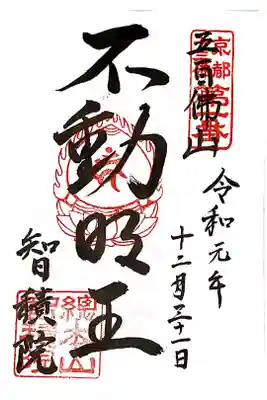 京都
第一番
五百佛山
令和元年
十二月三十一日
不動明王
智積院
總本山